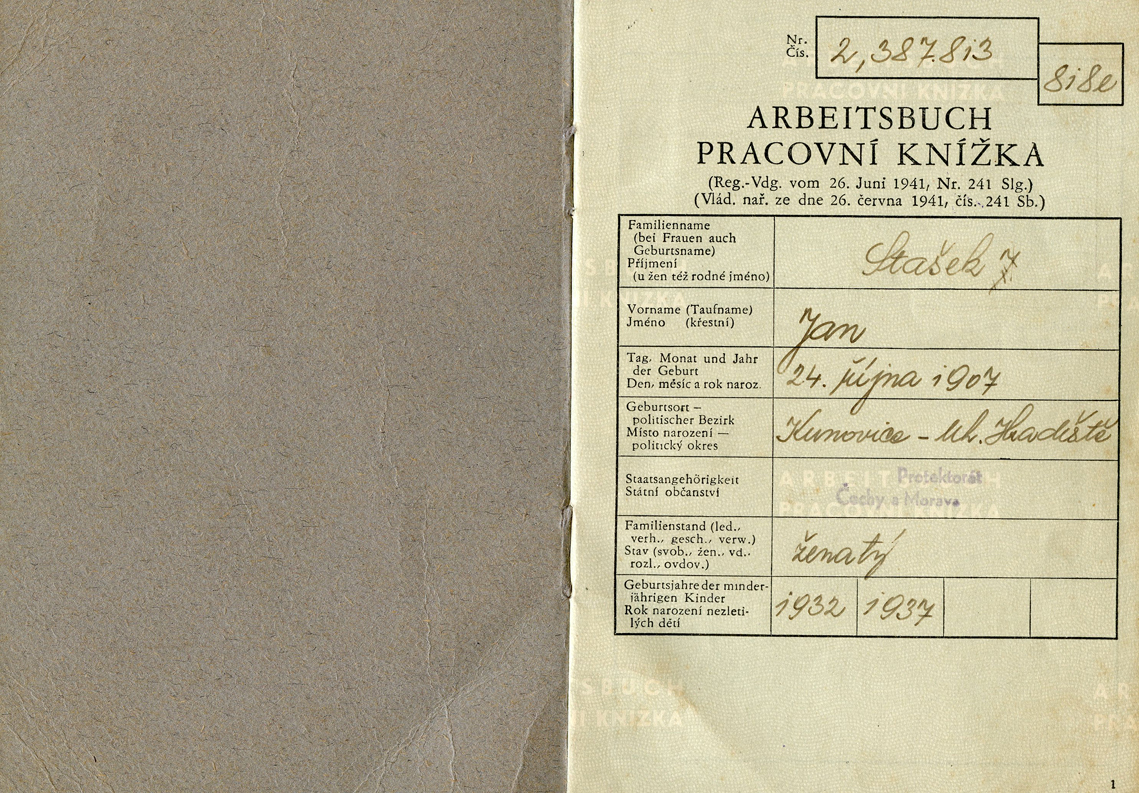 Nr.
Čís.
2,387.813
818e
ARBEITSBUCH
PRACOVNÍ KNÍŽKA
(Reg.-Vdg. vom 26. Juni 1941, Nr. 241 Slg.)
(Vlád. nař. ze dne 26. června 1941, čís. 241 Sb.)
Familienname
(bei Frauen auch
Geburtsname)
Příjmení
(u žen též rodné jméno)
Stašek
Vorname (Taufname)
Jméno (křestní)
Jan
Tag, Monat und Jahr
der Geburt
Den, měsíc a rok naroz.
24. října 1907
Geburtsort –
politischer Bezirk
Místo narození —
politický okres
Kunovice - Uh. Hradiště
Staatsangehörigkeit
Státní občanství
Protektorát
Čechy a Morava
Familienstand (led.,
verh., gesch., verw.)
Stav (svob., žen., vd.,
rozl., ovdov.)
ženatý
Geburtsjahre der minder-
jährigen Kinder
Rok narození nezleti-
lých dětí
1932 1937
ARBEITSBUCH
PRACOVNÍ KNÍŽKA
1